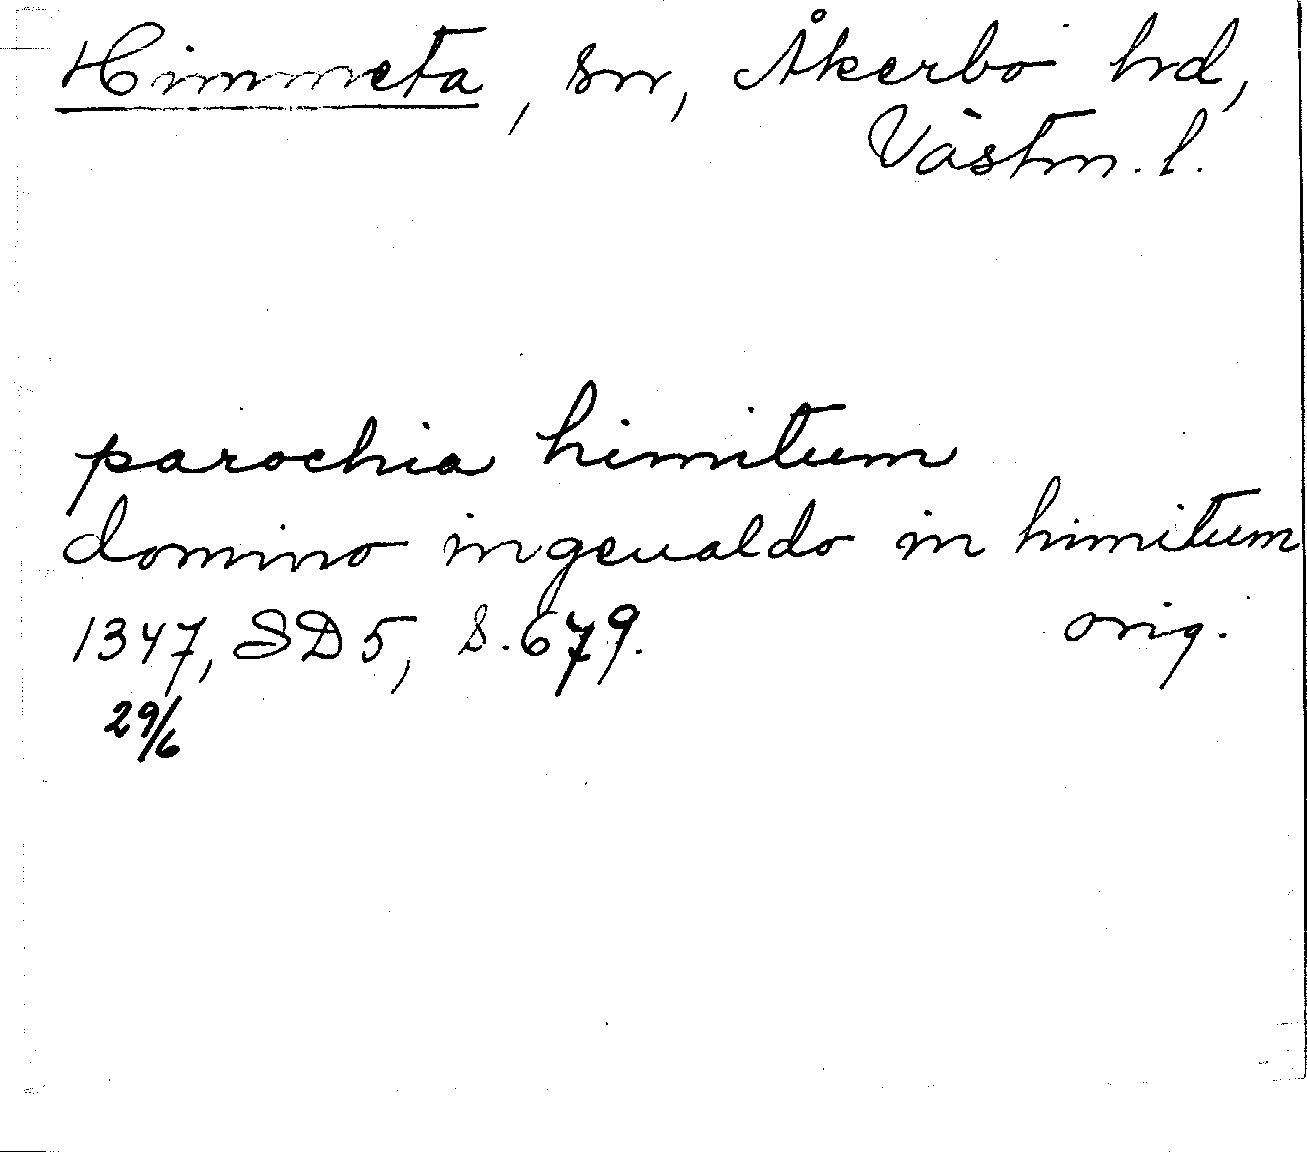 Himmeta, sn, Åkerbo hd,
Västm. l.
parochia himitum
domino ingeualdo in himitum
1347, SD 5, s. 679. orig.
29/6